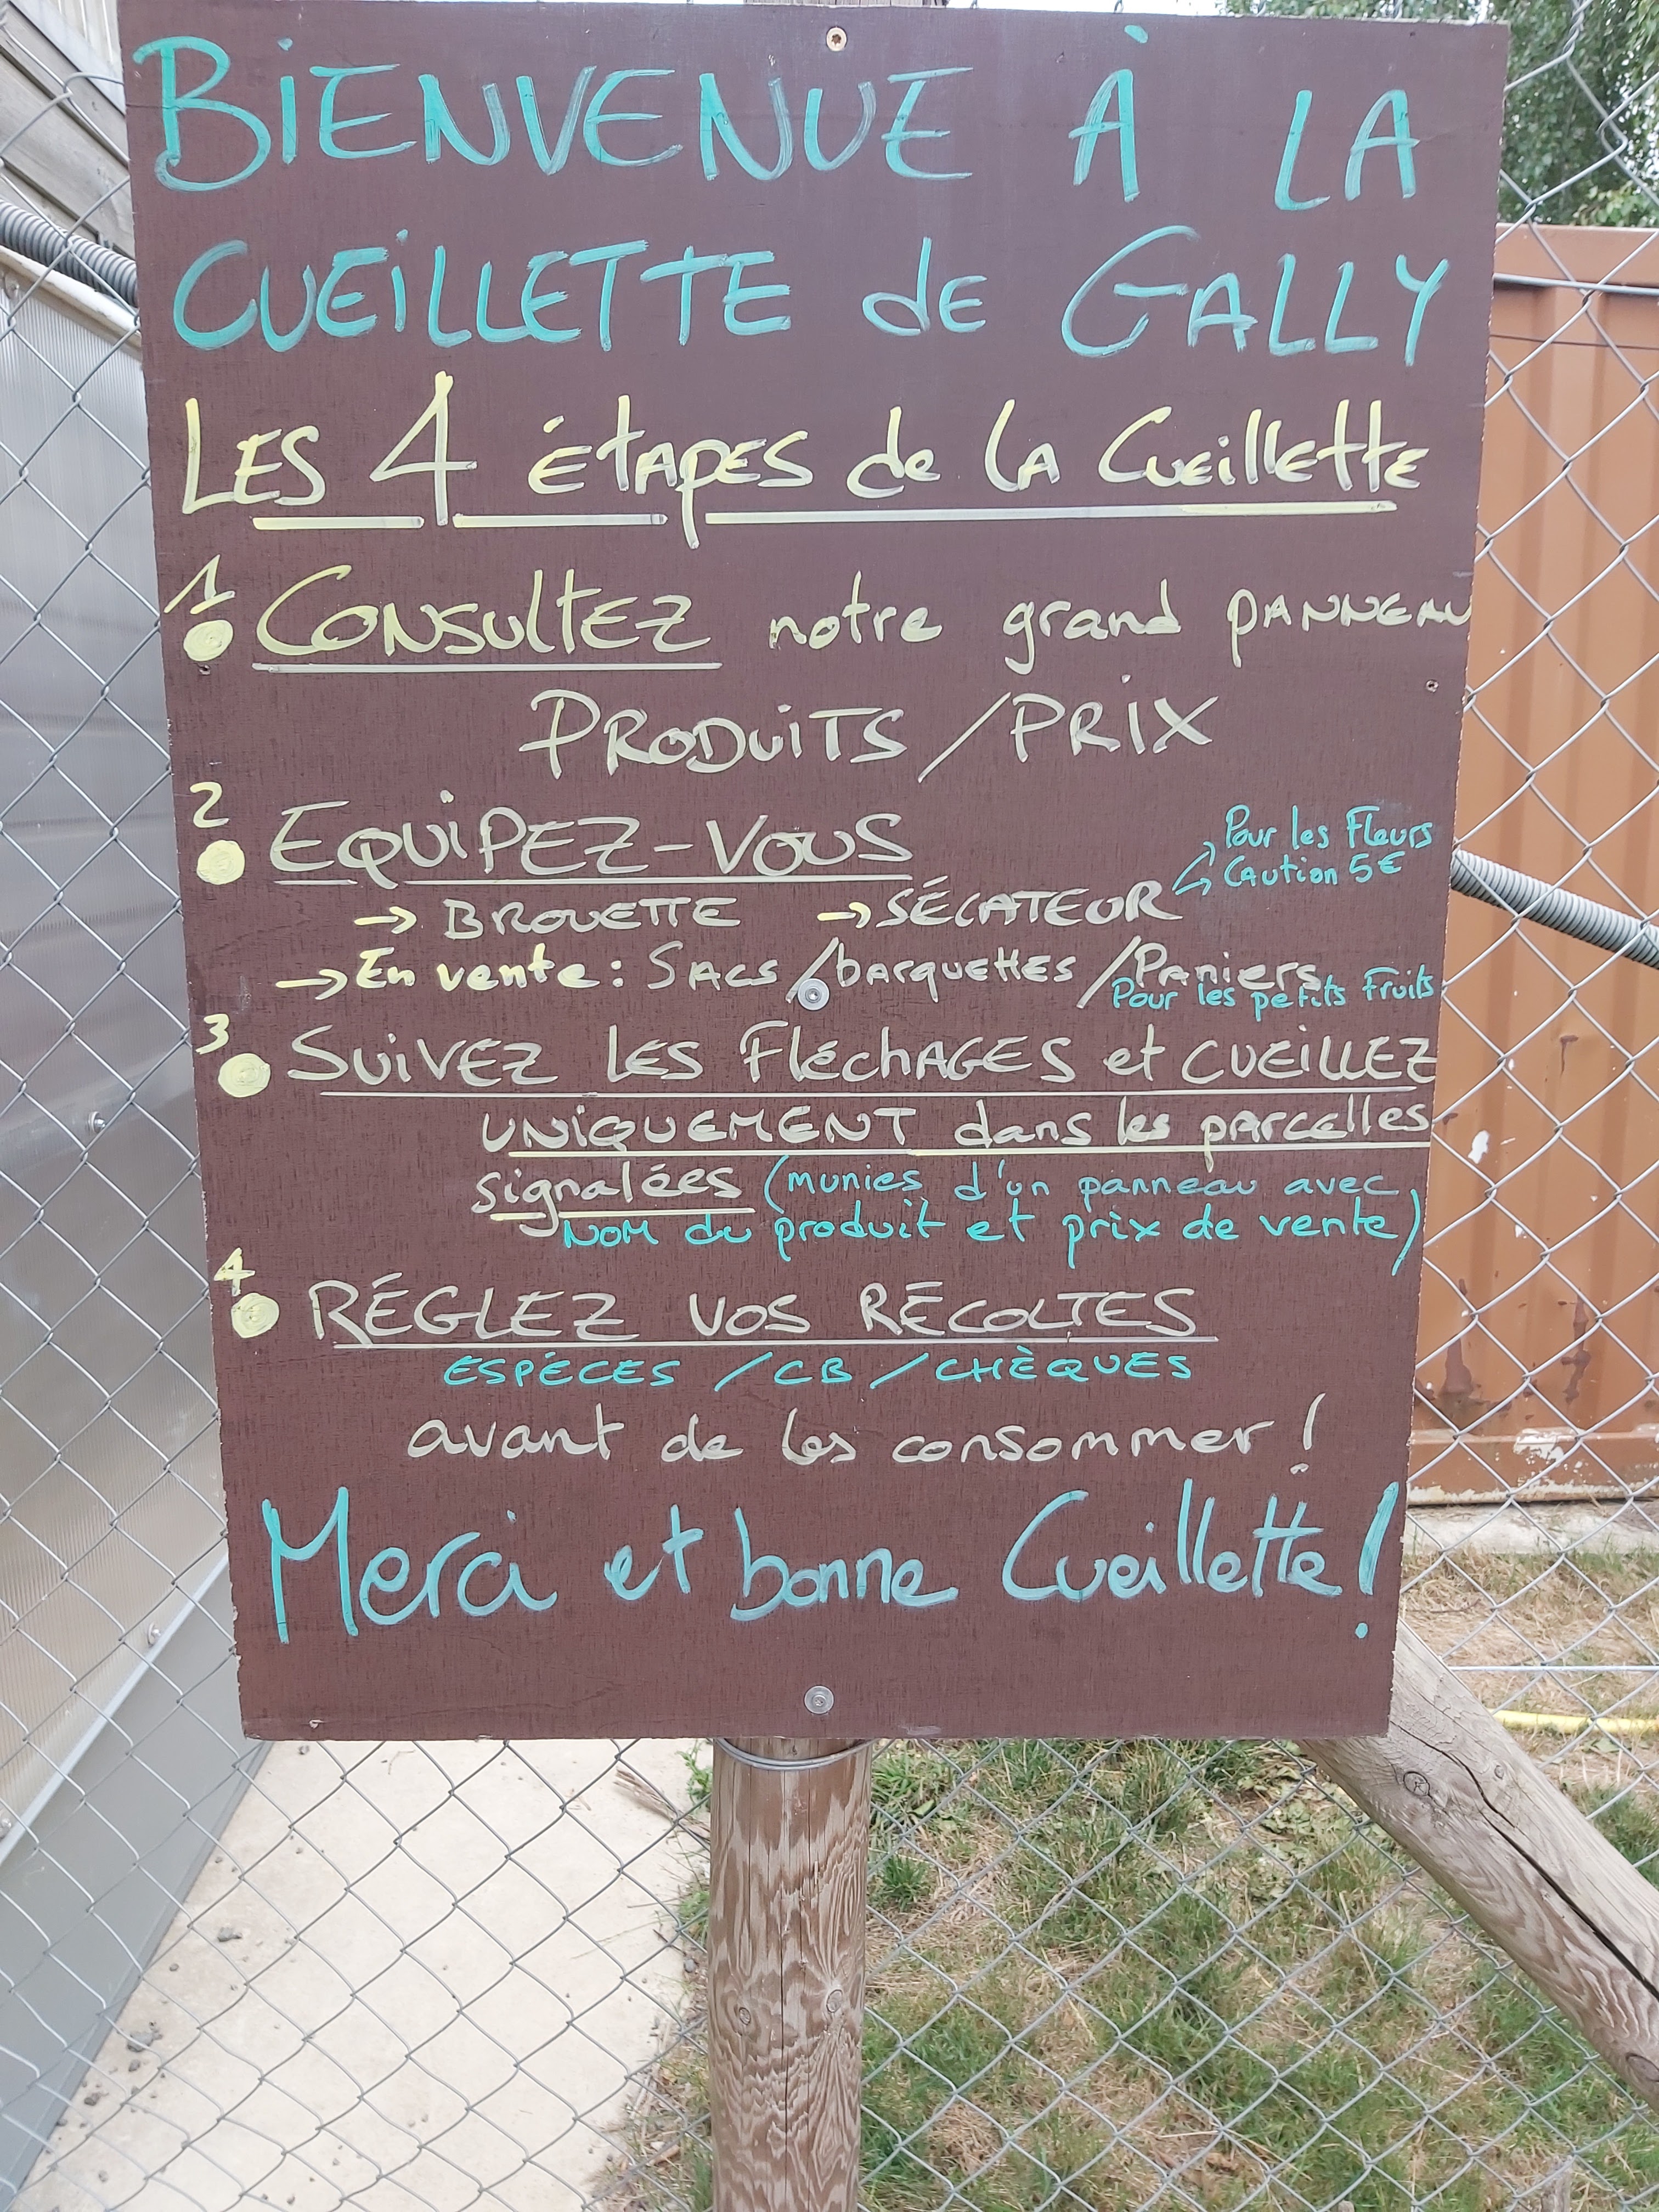 BIENVENUE À LA
CUEILLETTE dE GALLY
LES 4 étapes de la Cueillette
1 Consultez notre grand panneau
PRODUITS / PRIX
2 EQUIPEZ-VOUS
→ Pour les Fleurs
→ Caution 5€
→ BROUETTE → SÉCATEUR
→ En vente : Sacs / barquettes / Paniers
Pour les petits Fruits
3 SUIVEZ LES Fléchages et CUEILLEZ
UNIQUEMENT dans les parcelles
signalées (munies d'un panneau avec
NOM du produit et prix de vente)
4 RÉGLEZ VOS RÉCOLTES
ESPÈCES / CB / CHÈQUES
avant de les consommer !
Merci et bonne Cueillette !